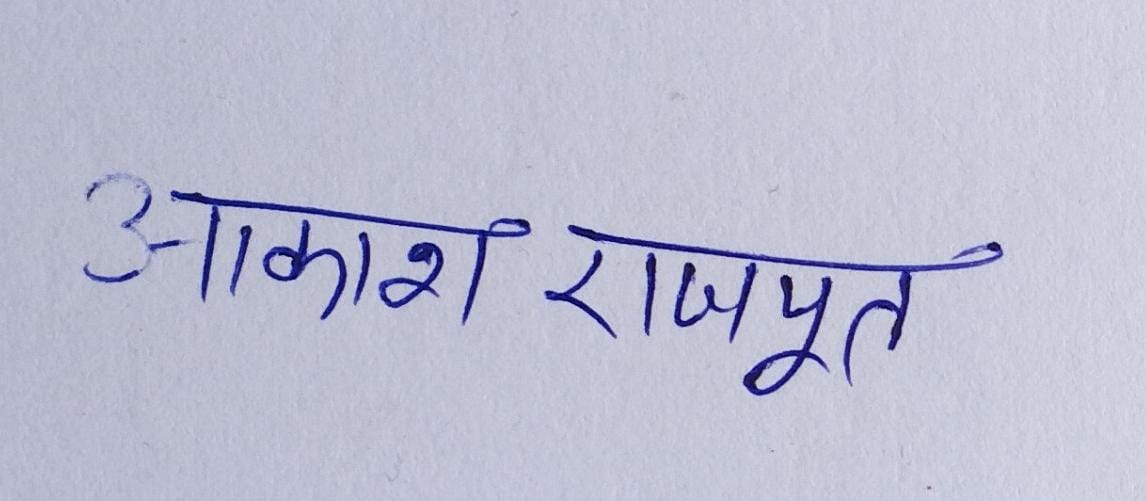 आकाश राजपूत